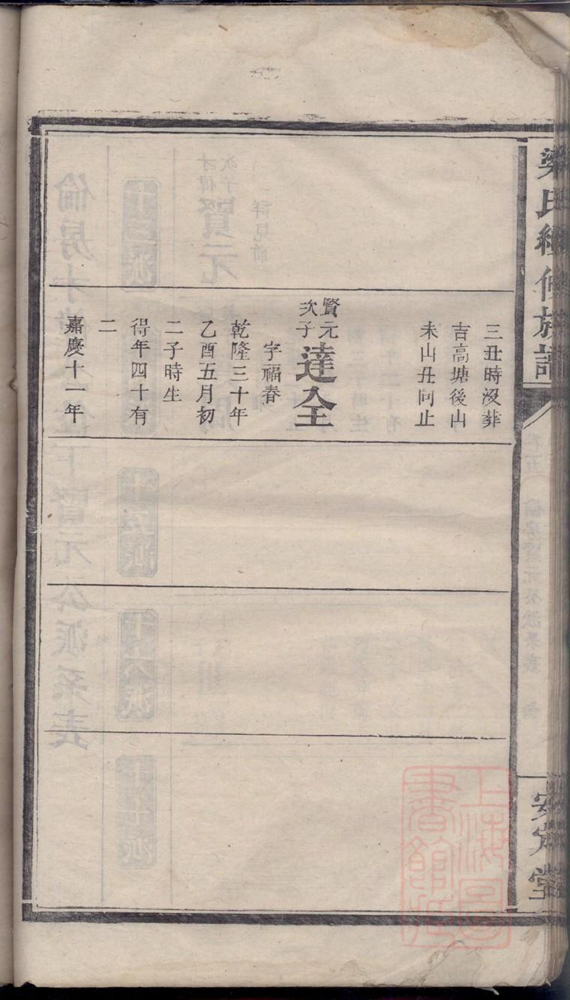 梁氏續修族譜
安定堂
三丑時沒葬
吉高塘後山
未山丑向止
賢元
次子
達全
字福春
乾隆三十年
乙酉五月初
二子時生
得年四十有
二
嘉慶十一年
上海圖
書館藏